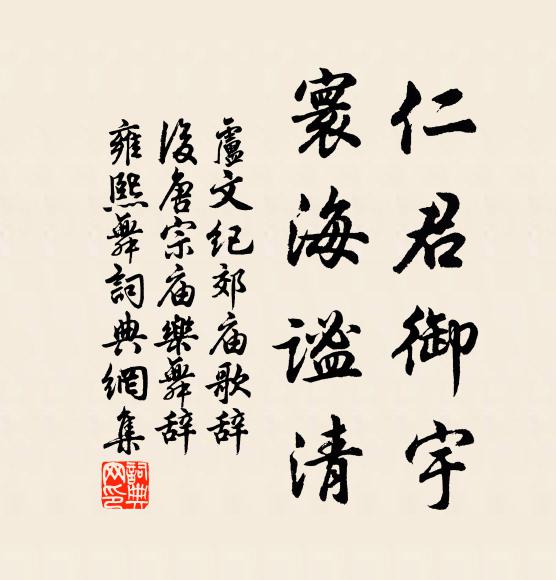 仁君御宇
寰海謐清
盧文紀郊庙歌辞
後唐宗庙樂舞辞
雍熙舞詞典網集
詞典
网印